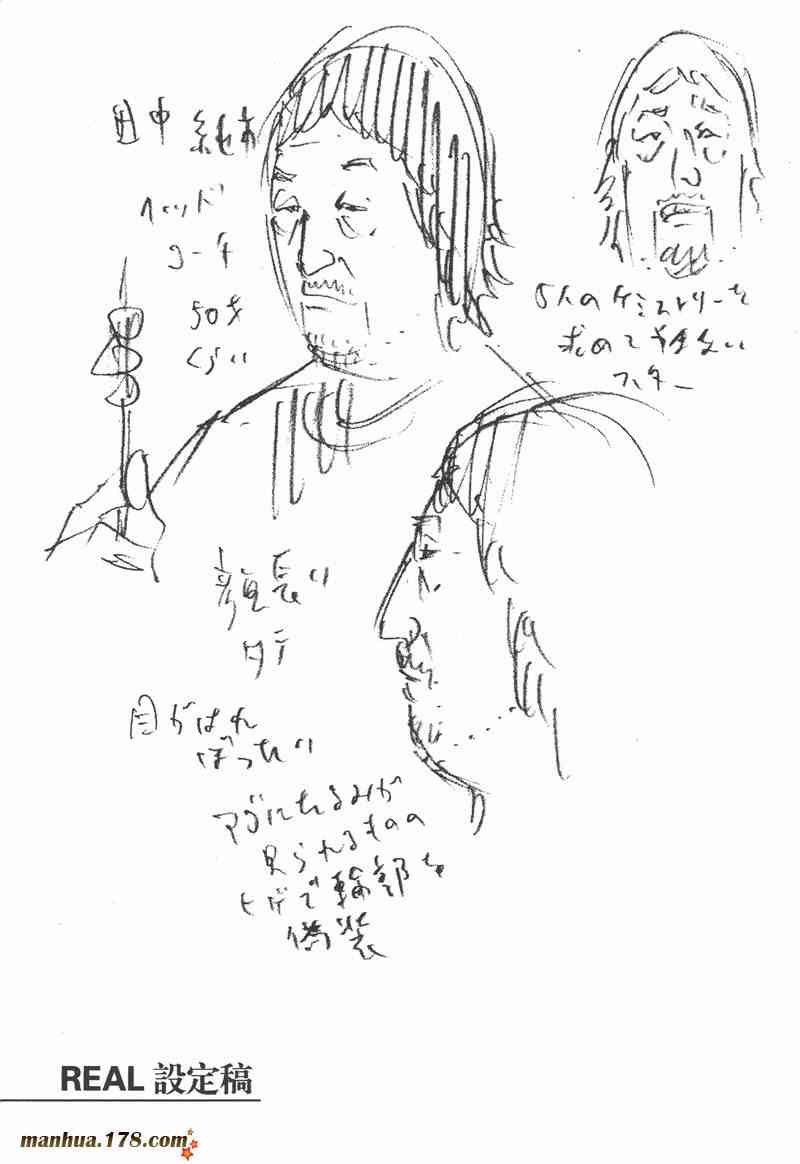 田中
ヘッド
コーチ
50才
くらい
5人のケミストリーを
求めて
スター
顔長い
タテ
目がはれ
ぼったい
アゴにたるみが
見られるものの
ヒゲで輪郭を
偽装
REAL 設定稿
manhua.178.com